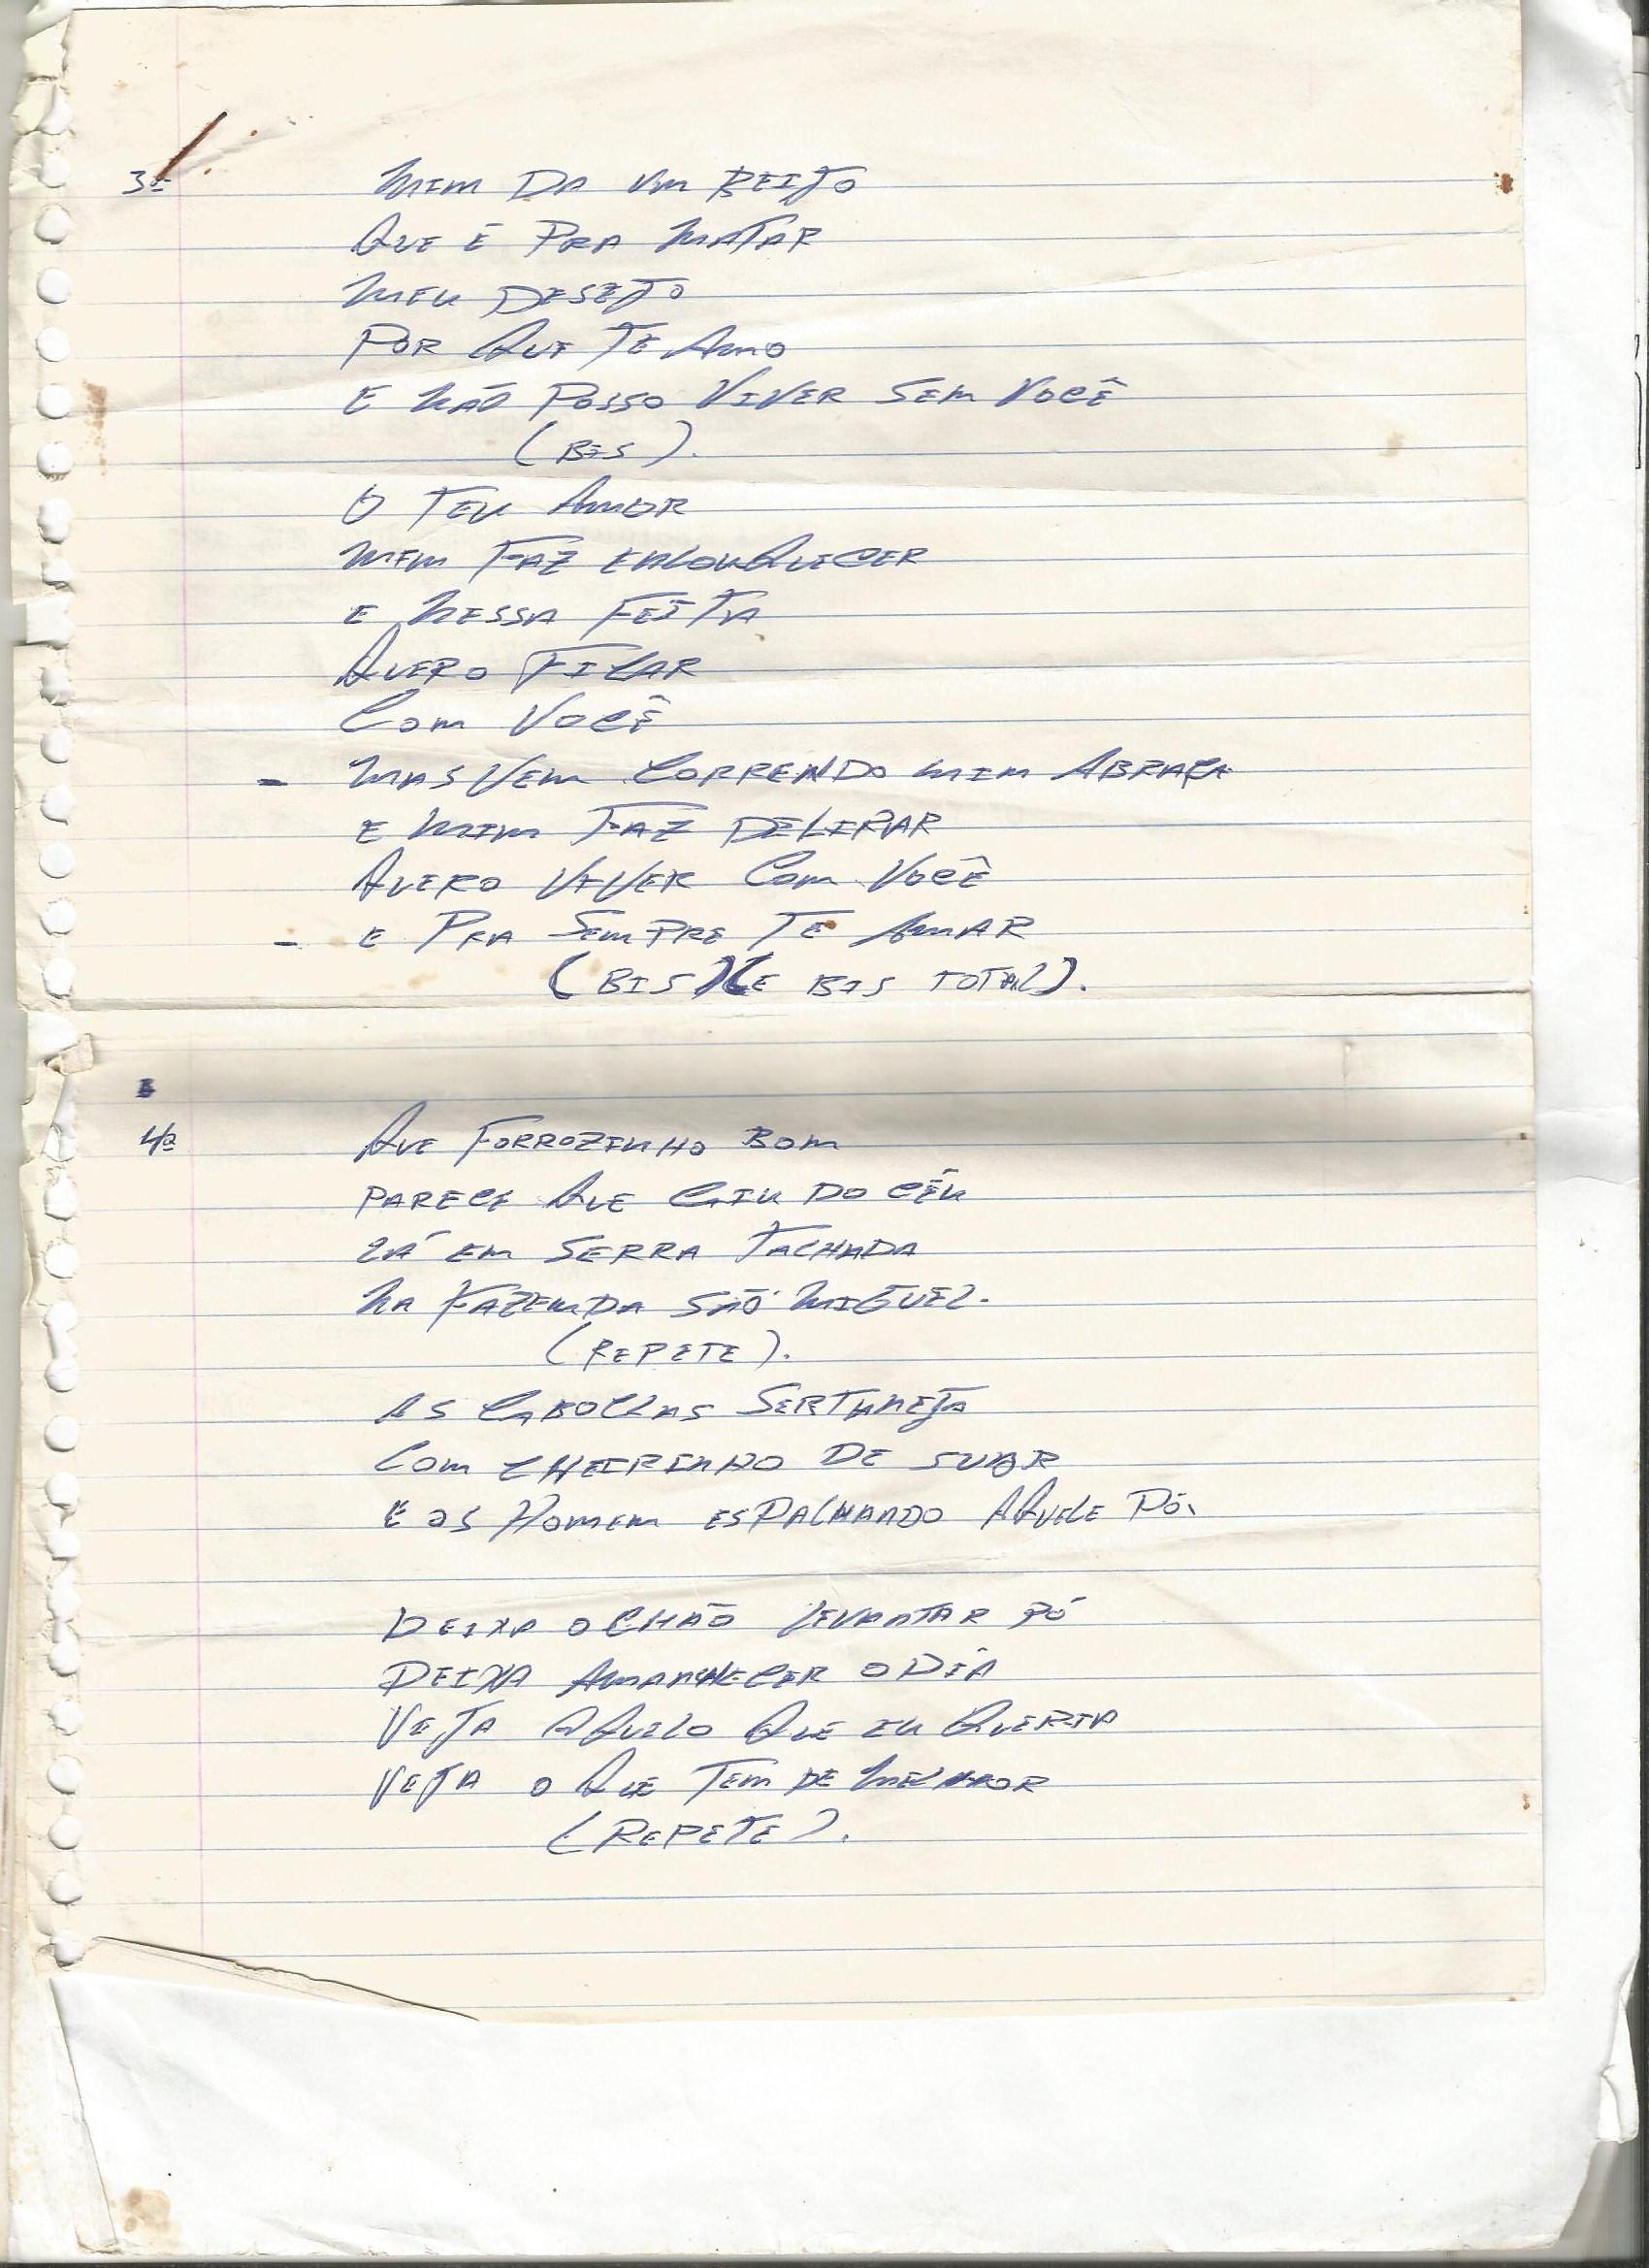 3ª MIM DA UM BEIJO
QUE É PRA MATAR
MEU DESEJO
POR QUE TE AMO
E NÃO POSSO VIVER SEM VOCÊ
(BIS).
O TEU AMOR
MIM FAZ ENLOUQUECER
E NESSA FEITA
QUERO FICAR
COM VOCÊ
- MAS VEM CORRENDO MIM ABRAÇA
E MIM FAZ DELIRAR
QUERO VIVER COM VOCÊ
- E PRA SEMPRE TE AMAR
(BIS)(E BIS TOTAL).
4ª QUE FORROZINHO BOM
PARECE QUE CAIU DO CÉU
LÁ EM SERRA TALHADA
NA FAZENDA SÃO MIGUEL.
(REPETE).
AS CABOCLAS SERTANEJA
COM CHEIRINHO DE SUOR
E OS HOMEM ESPALHANDO AQUELE PÓ.
DEIXA O CHÃO LEVANTAR PÓ
DEIXA AMANHECER O DIA
VEJA AQUILO QUE EU QUERIA
VEJA O QUE TEM DE MELHOR
(REPETE).